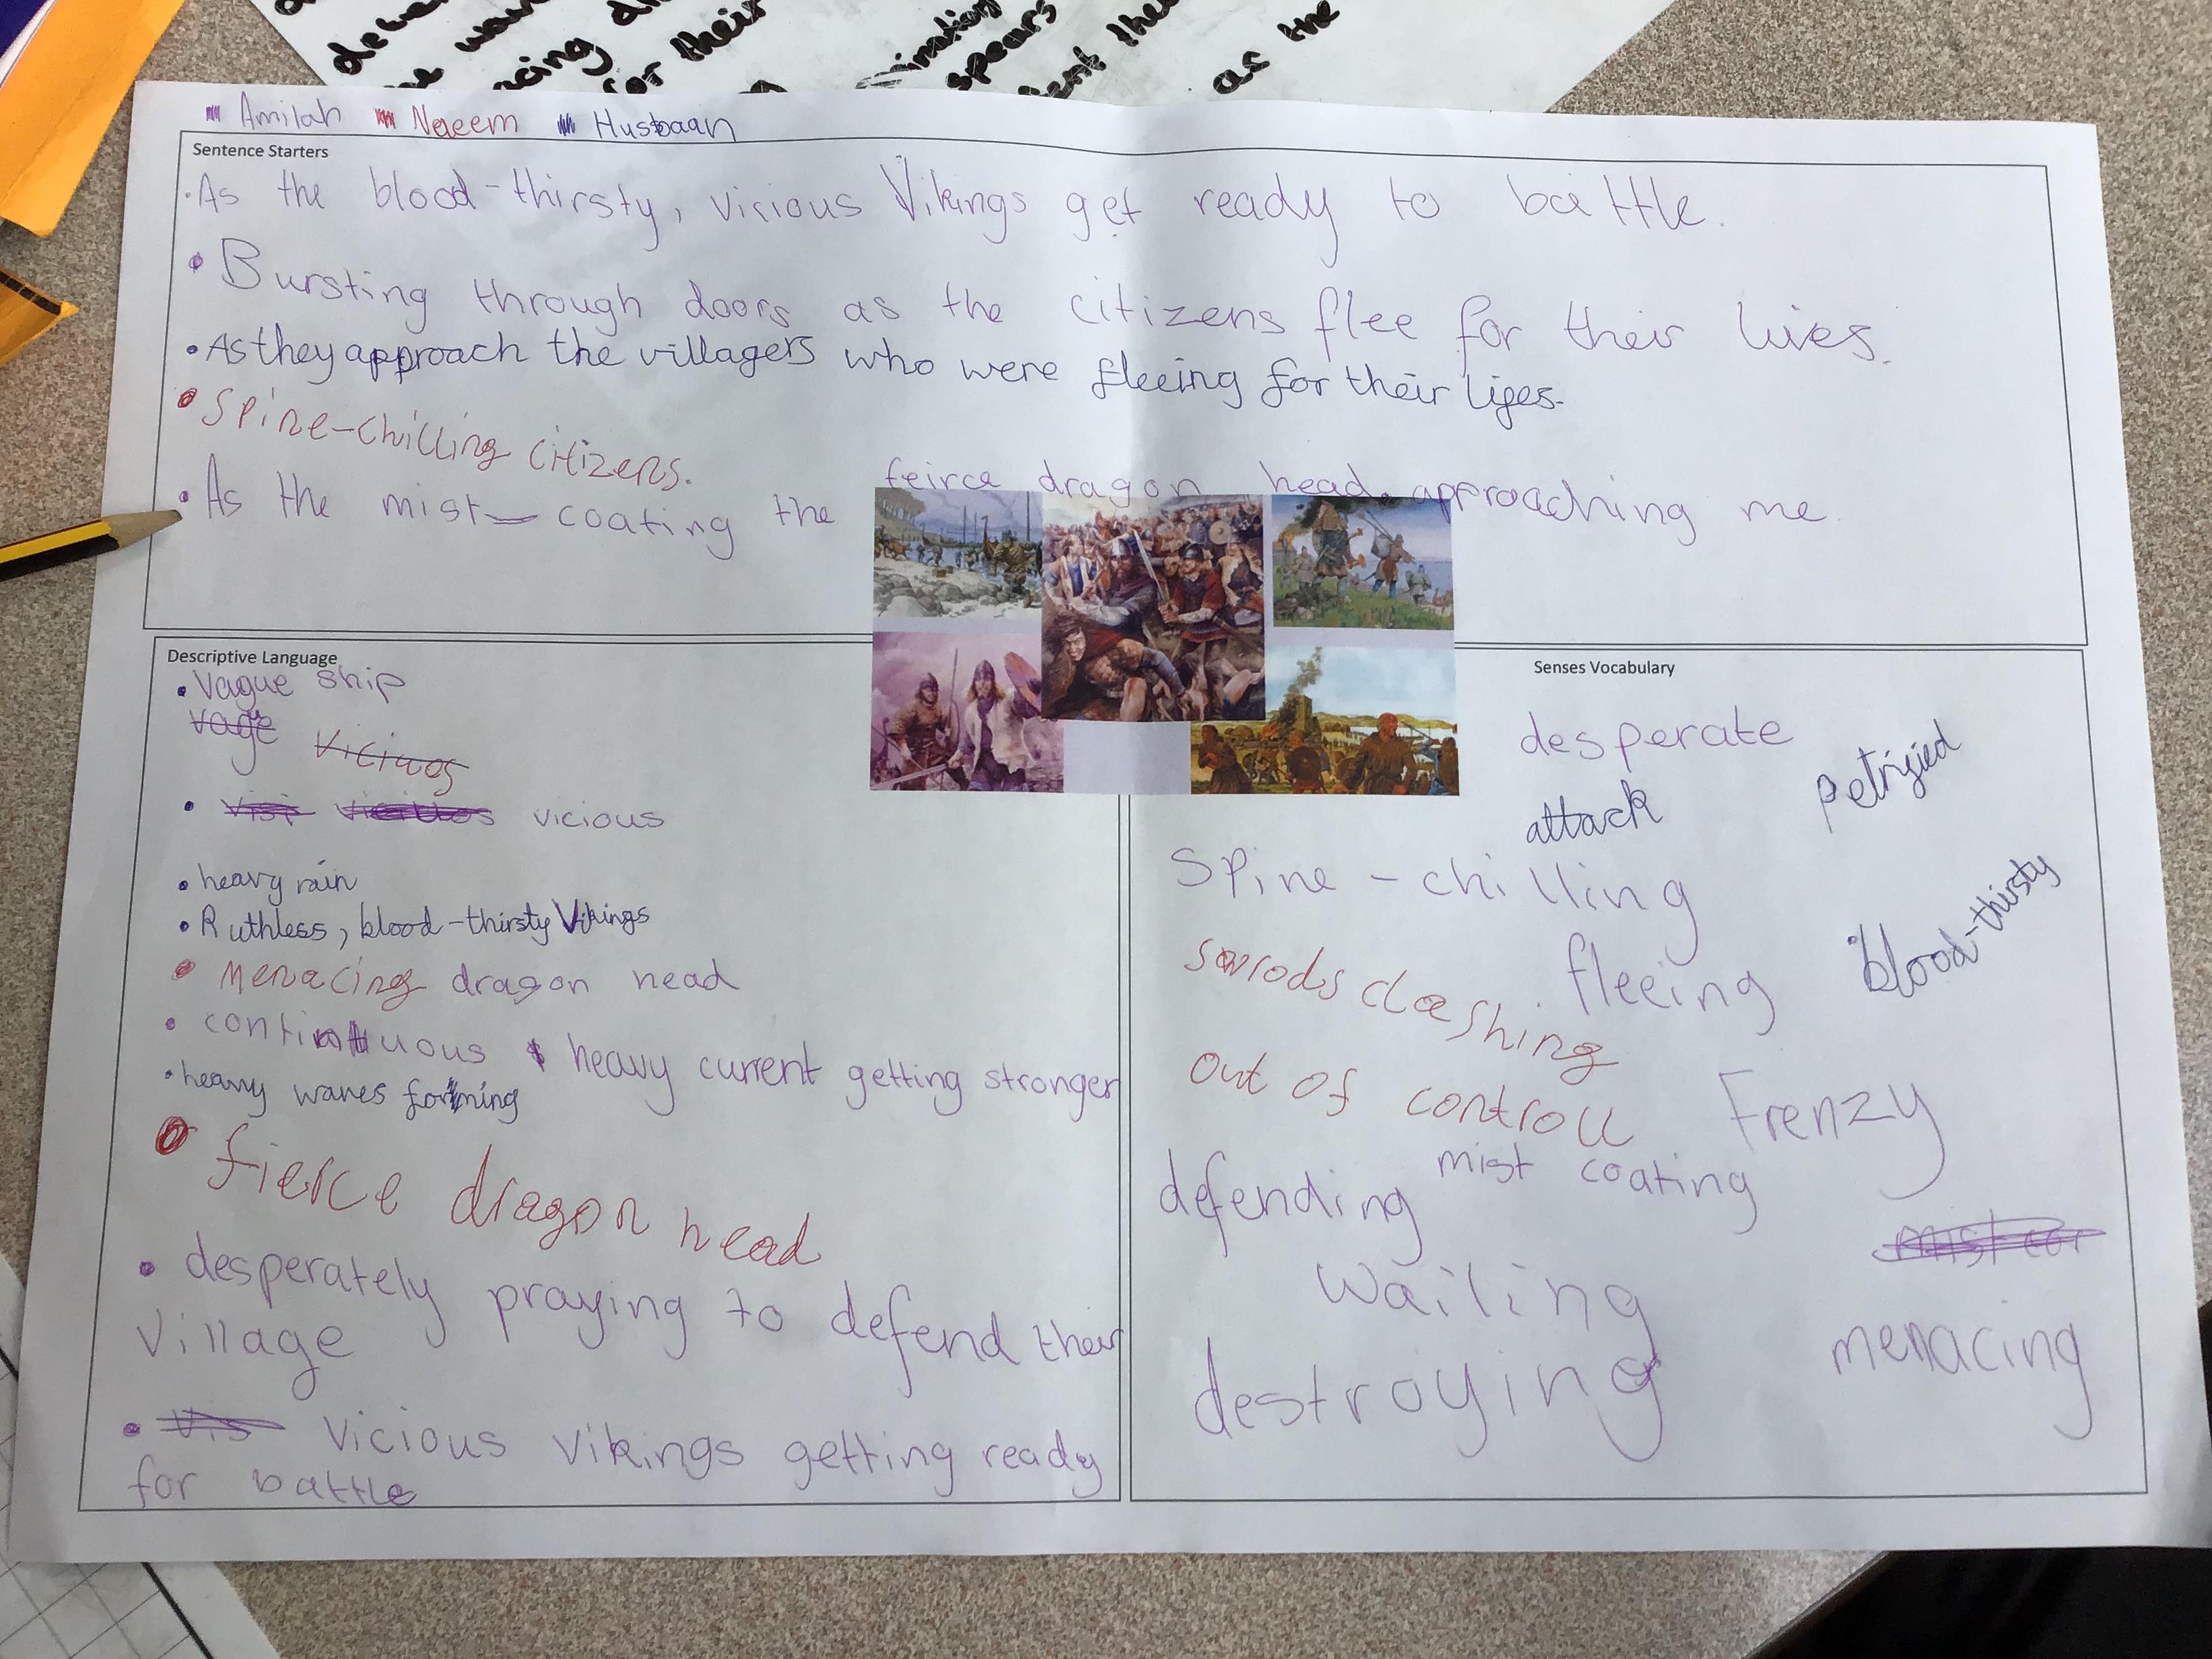 for their
spears
as the
Amilah Naeem Husbaan
Sentence Starters
· As the blood-thirsty, vicious Vikings get ready to battle.
• Bursting through doors as the citizens flee for their lives.
• As they approach the villagers who were fleeing for their lifes.
• Spine-chilling citizens.
• As the mist coating the feirce dragon head approaching me
Descriptive Language
• Vague ship
vage Viciuos
• visi vicious
• heavy rain
• Ruthless, blood-thirsty Vikings
• menacing dragon head
• continuous heavy current getting stronger
• heavy waves forming
• fierce dragon head
• desperately praying to defend their
village
• Vis Vicious Vikings getting ready
for battle
Senses Vocabulary
desperate
petrified
attack
Spine-chilling
blood-thirsty
swrods clashing
fleeing
out of controll
Frenzy
mist coating
defending
mist coa
wailing
menacing
destroying